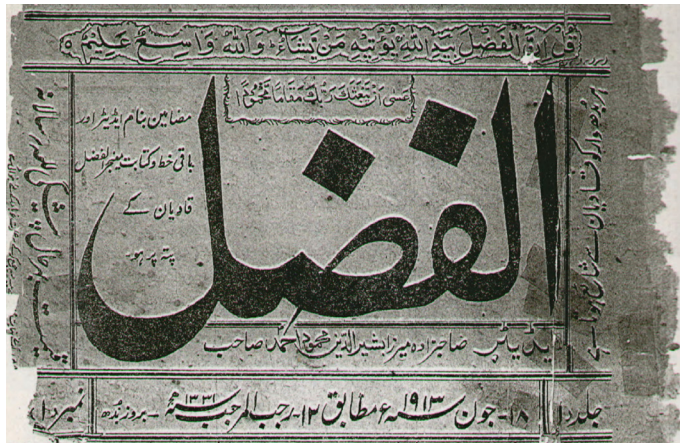 قُلْ اِنَّ الْفَضْلَ بِيَدِ اللّٰهِ يُؤْتِيْهِ مَنْ يَّشَآءُ وَاللّٰهُ وَاسِعٌ عَلِيْمٌ
عَسٰى اَنْ يَّبْعَثَكَ رَبُّكَ مَقَامًا مَّحْمُوْدًا
الفضل
مضامین بنام ایڈیٹر اور
باقی خط و کتابت مینجر الفضل
قادیان کے
پتہ پر ہو۔
ہر بدھوار کو قادیان سے شائع ہوتا ہے
ایڈیٹر صاحبزادہ میرزا بشیر الدین محمود احمد صاحب
جلد ۱
۱۸۔ جون ۱۹۱۳ء مطابق ۱۲۔ رجب المرجب ۱۳۳۱ھ ۔ بروز بدھ
نمبر ۱